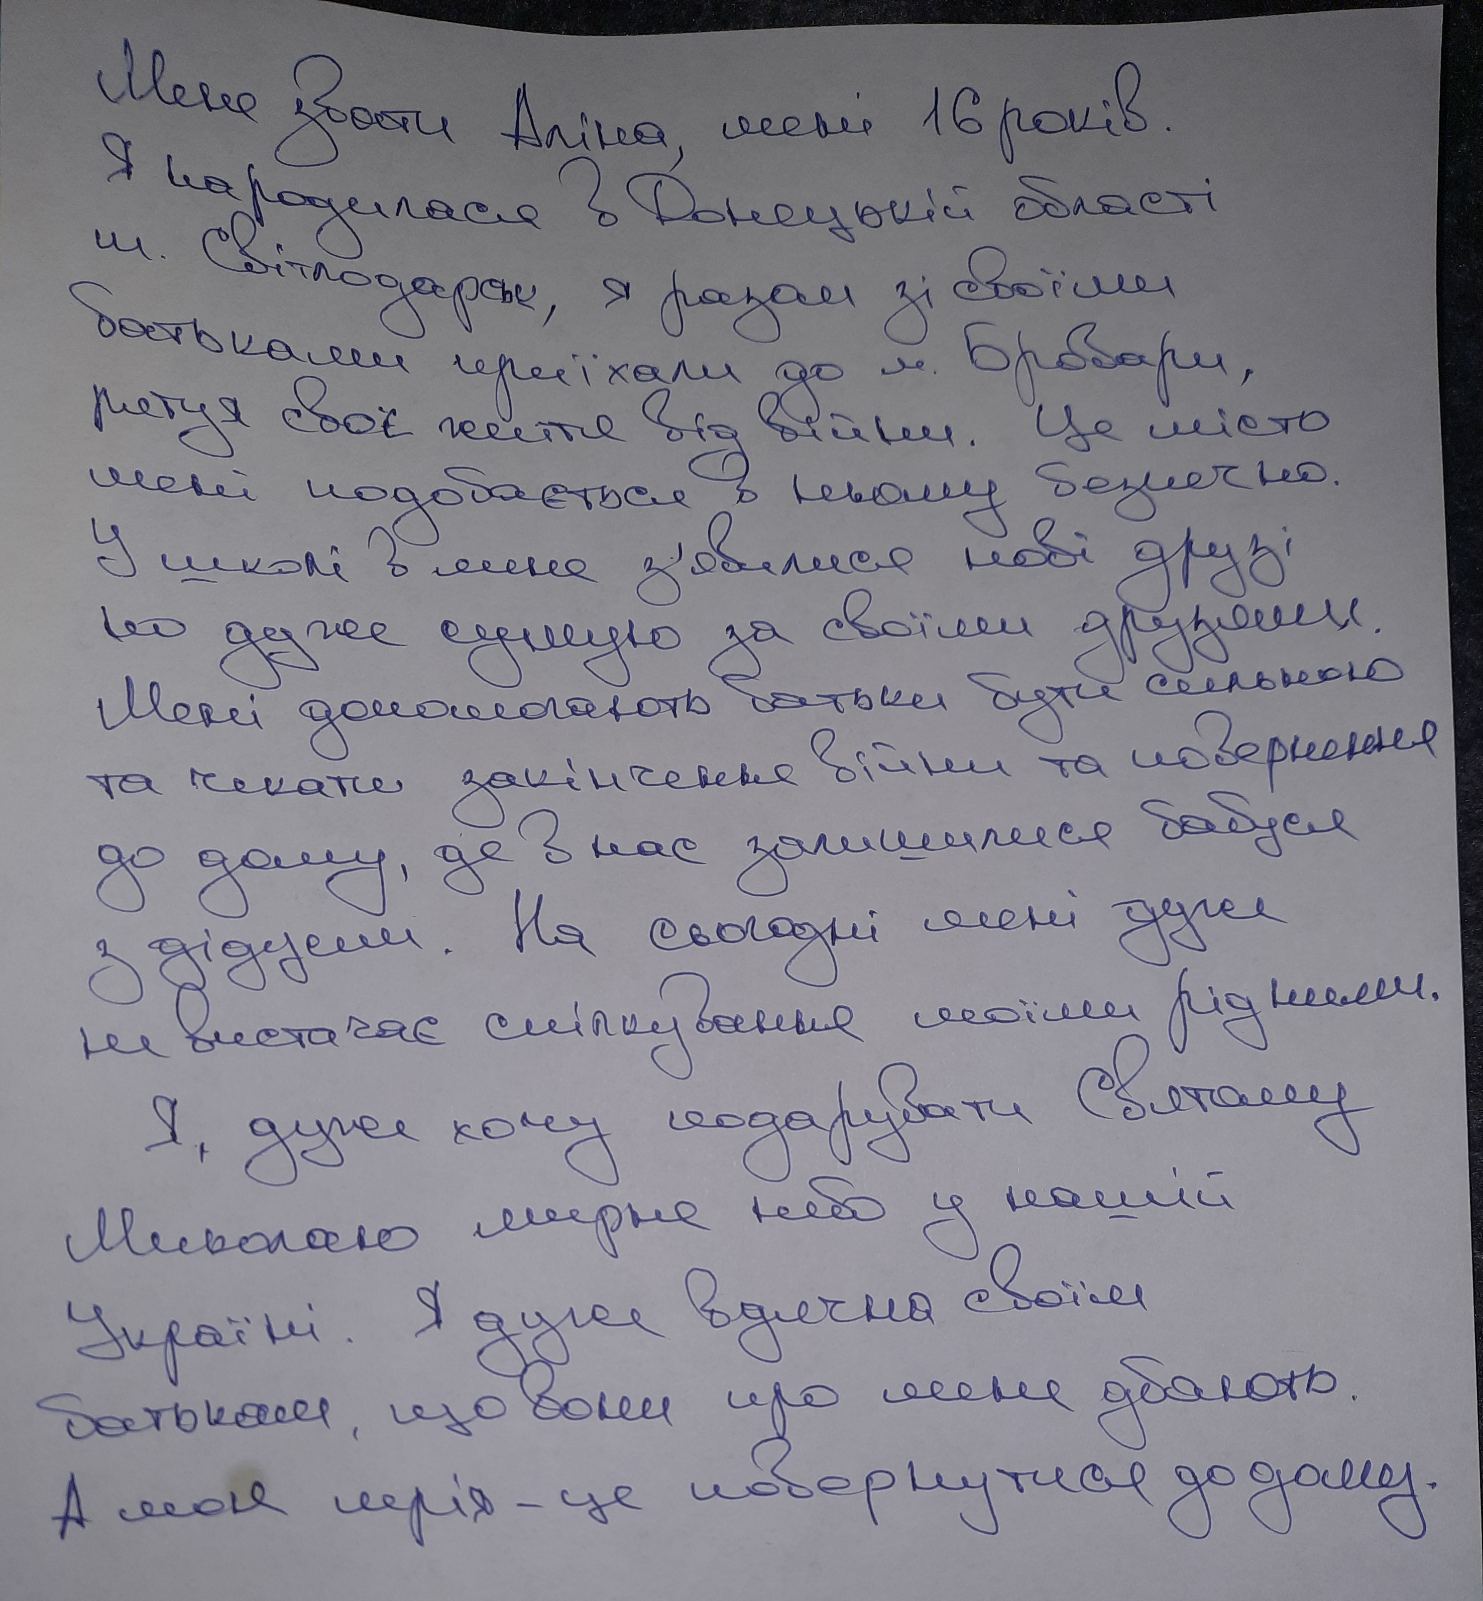 Мене звати Аліна, мені 16 років.
Я народилася в Донецькій області
м. Світлодарськ, я разом зі своїми
батьками приїхали до м. Бровари,
рятуя своє життя від війни. Це місто
мені подобається в ньому безпечно.
У школі в мене з'явилися нові друзі
но дуже сумую за своїми друзями.
Мені допомогають батьки бути сильною
та чекати закінчення війни та повернення
до дому, де в нас залишилися бабуся
з дідусем. На сьогодні мені дуже
не вистачає спілкування моїми рідними.
Я, дуже хочу подарувати Святому
Миколаю мирне небо у нашій
Україні. Я дуже вдячна своїм
батькам, що вони про мене дбають.
А моя мрія - це повернутися до дому.